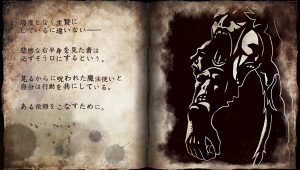 過度となく生贄に
しているに違いない――
悲惨な右半身を見た者は
必ずそう口にするという。
見るからに呪われた魔法使いと
自分は行動を共にしている。
ある依頼をこなすために。